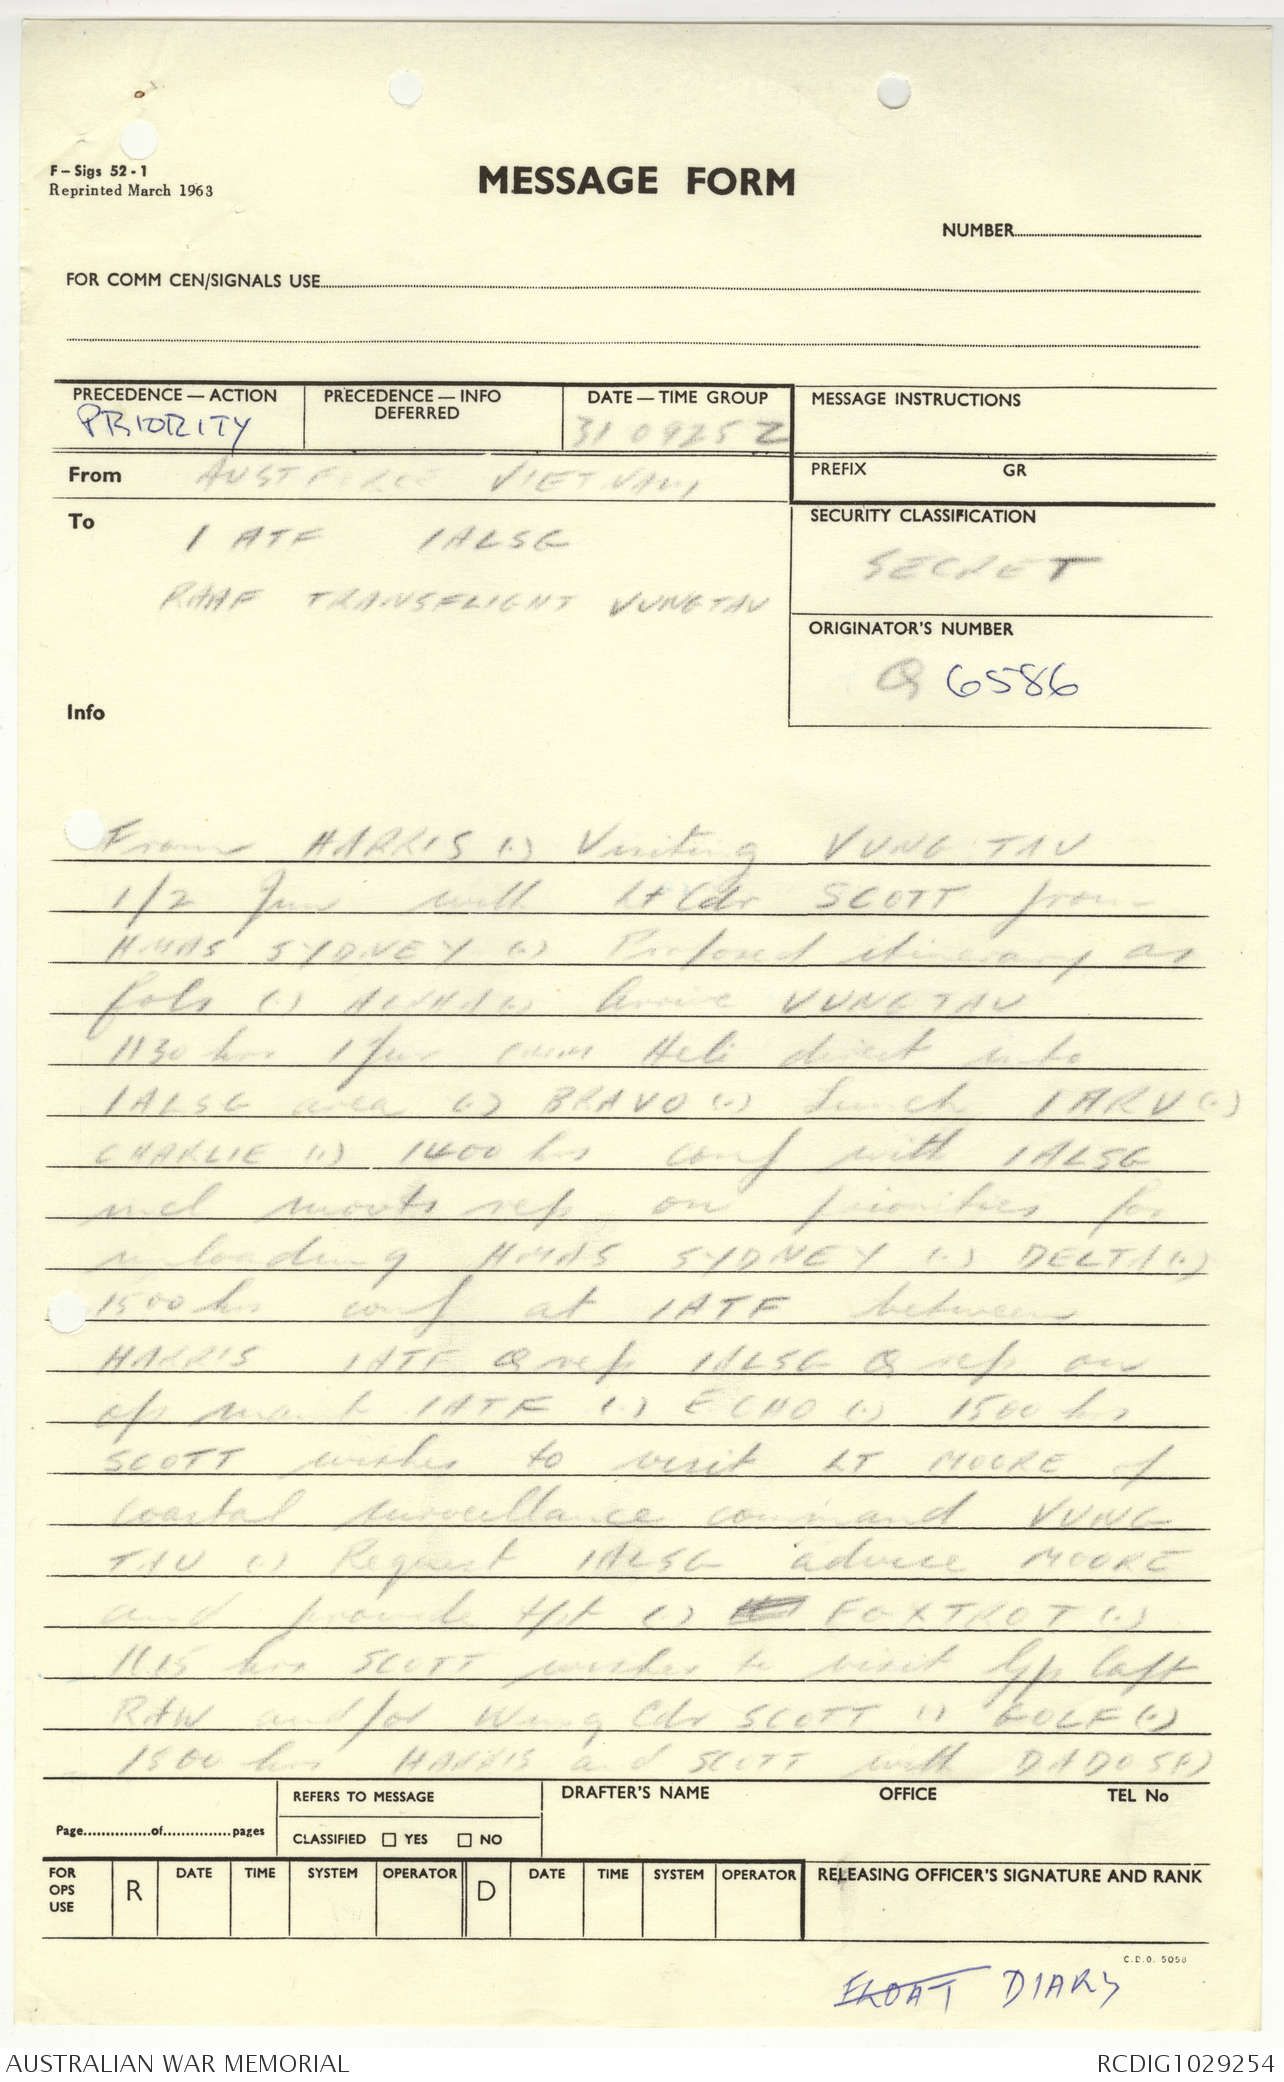 F – Sigs 52 - 1
Reprinted March 1963
MESSAGE FORM
NUMBER
FOR COMM CEN/SIGNALS USE
PRECEDENCE — ACTION
PRIORITY
PRECEDENCE — INFO
DEFERRED
DATE — TIME GROUP
310925Z
MESSAGE INSTRUCTIONS
From AUSTFORCE VIETNAM
PREFIX GR
To
1 ATF 1ALSG
RAAF TRANSFLIGHT VUNGTAU
SECURITY CLASSIFICATION
SECRET
ORIGINATOR'S NUMBER
Q 6586
Info
From HARRIS (.) Visiting VUNG TAU
1/2 Jun with Lt Cdr SCOTT from
HMAS SYDNEY (.) Proposed itinerary as
fols (.) ALPHA (.) Arrive VUNGTAU
1130 hrs 1 Jun Heli direct into
1ALSG area (.) BRAVO (.) Lunch 1ARU (.)
CHARLIE (.) 1400 hrs conf with 1ALSG
incl movts rep on priorities for
unloading HMAS SYDNEY (.) DELTA (.)
1500 hrs conf at 1ATF between
HARRIS 1ATF Q rep 1ALSG Q rep on
1ATF (.) ECHO (.) 1500 hrs
SCOTT wishes to visit LT MOORE of
coastal surveillance command VUNG
TAU (.) Request 1ALSG advise MOORE
and provide tpt (.) FOXTROT (.)
1115 hrs SCOTT wishes to visit Gp Capt
RAW and/or Wing Cdr SCOTT (.) GOLF (.)
1500 hrs HARRIS and SCOTT with DADOS (.)
Page of pages
REFERS TO MESSAGE
CLASSIFIED YES NO
DRAFTER'S NAME OFFICE TEL No
FOR OPS USE R DATE TIME SYSTEM OPERATOR D DATE TIME SYSTEM OPERATOR
RELEASING OFFICER'S SIGNATURE AND RANK
C.D.O. 5058
FLOAT DIARY
AUSTRALIAN WAR MEMORIAL RCDIG1029254